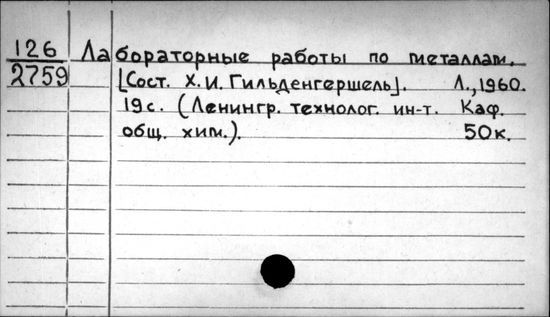 126
2759
Лабораторные работы по металлам.
[Сост. Х.И. Гильденгершель]. Л., 1960.
19 с. (Ленингр. технолог. ин-т. Каф.
общ. хим.). 50 к.